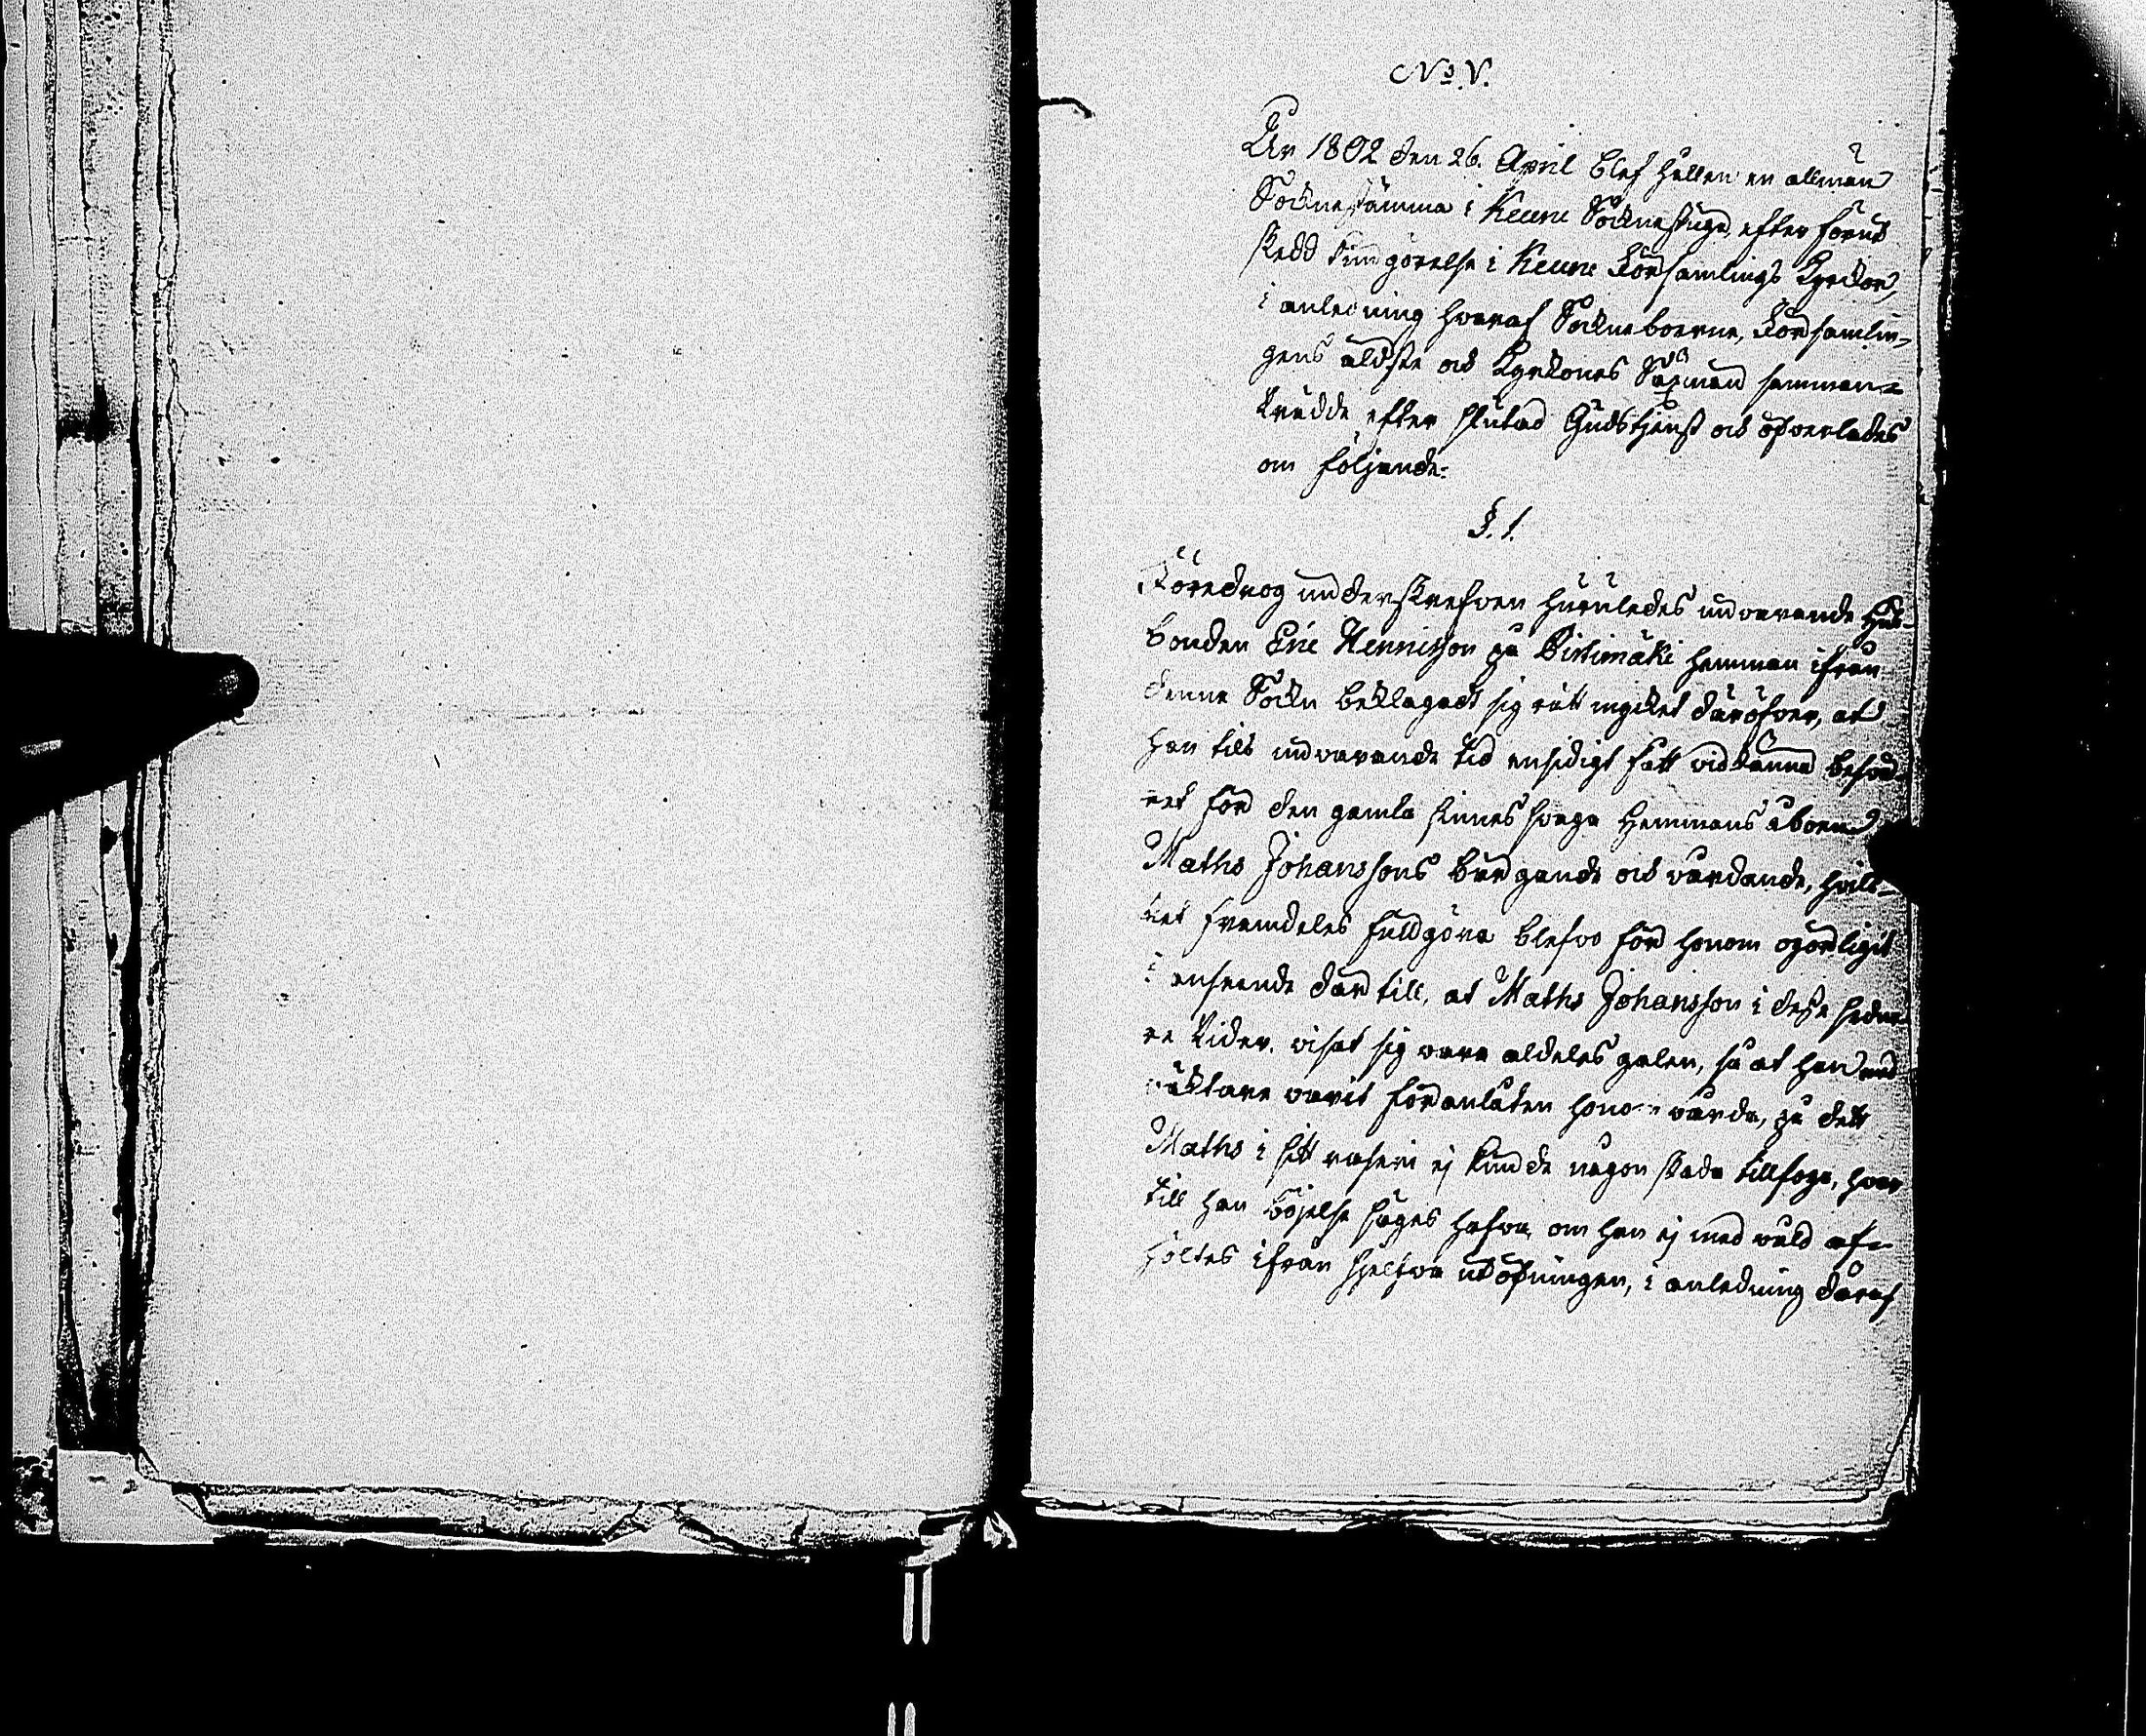 No. V.
År 1802 den 26. April blef hållen en allmän
Sockne stämma i Keuru Socknestuga, efter förut
skedd kundgörelse i Keuru Församlings Kyrckor,
i anledning hvaraf Sockneboerne, Församlin-
gens äldste och Kyrckones Säxmän samman-
trädde efter slutad Gudstjenst och öfverlades
om följande:
§. 1.
Föredrog underskrefven huruledes nuvarande Hus-
bonden Eric Henricsson på hemman ifrån
denne Sockn beklagadt sig rätt mycket däröfver, at
han tils nuvarande tid ensidigt fått vidkänna besvä-
ret för den gamla sinnes svaga Hemmans åboen
Maths Johanssons bärgande och vårdande, hvil-
ket framdeles fullgöra blefve för honom ogörligit
i anseende där till, at Maths Johansson i desse sedna-
re tider, visat sig vara aldeles galen, så at han med
väktare varit föranlåten honom vårda, på dett
Maths i sitt raseri ej kunde någon skada tillfoga, hvar
till han böjelse säges hafva, om han ej med våld af-
höltes ifrån sjelfva utöfningen, i anledning däraf